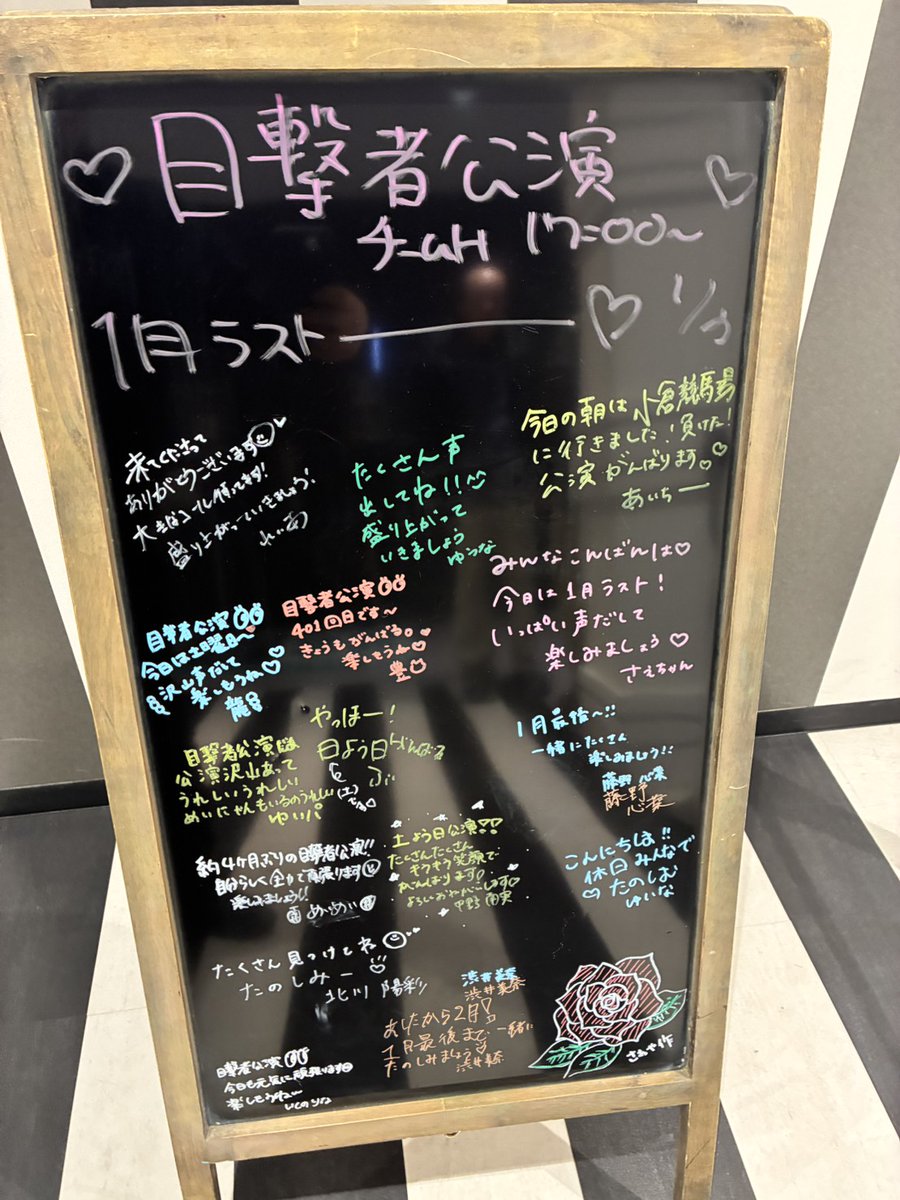 目撃者公演
チームH 17:00〜
1月ラスト
来てくださって
ありがとうございます!
盛り上がっていきましょう!
れいあ
たくさん声
出してね!!
盛り上がって
いきましょう
ゆうな
今日の朝は小倉競馬場
に行きました!負けた!
公演がんばります
あいちー
みんなこんばんは
今日は1月ラスト!
いっぱい声だして
楽しみましょう
さえちゃん
目撃者公演
今日は土曜日〜
沢山声だして
楽しもうね
龍
目撃者公演
401回目です〜
きょうもがんばる。
楽しもうね
豊
やっほー!
日よう日
目撃者公演
公演沢山あって
うれしいうれしい
めいにゃんもいるのうれしい
ゆいパ
1月最後〜!!
一緒にたくさん
楽しみましょう!!
藤野 心葉
藤野
心葉
約4ヶ月ぶりの目撃者公演!!
自分らしく全力で頑張ります
楽しみましょう!!
めいめい
土よう日公演
たくさんたくさん
笑顔で
がんばります!
よろしくおねがいします
こんにちは!!
休日みんなで
たのしむ
ゆいな
たくさん見つけてね
たのしみー
北川 陽彩
渋井美奈
渋井美奈
あしたから2月!
1月最後まで一緒に
たのしみましょう
渋井美奈
目撃者公演
今日も元気に頑張ります
楽しもうね〜
いくのりな